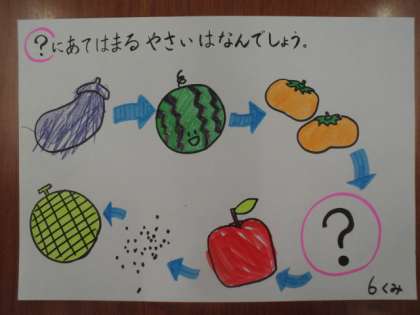 ?にあてはまる やさい はなんでしょう。
?
6くみ